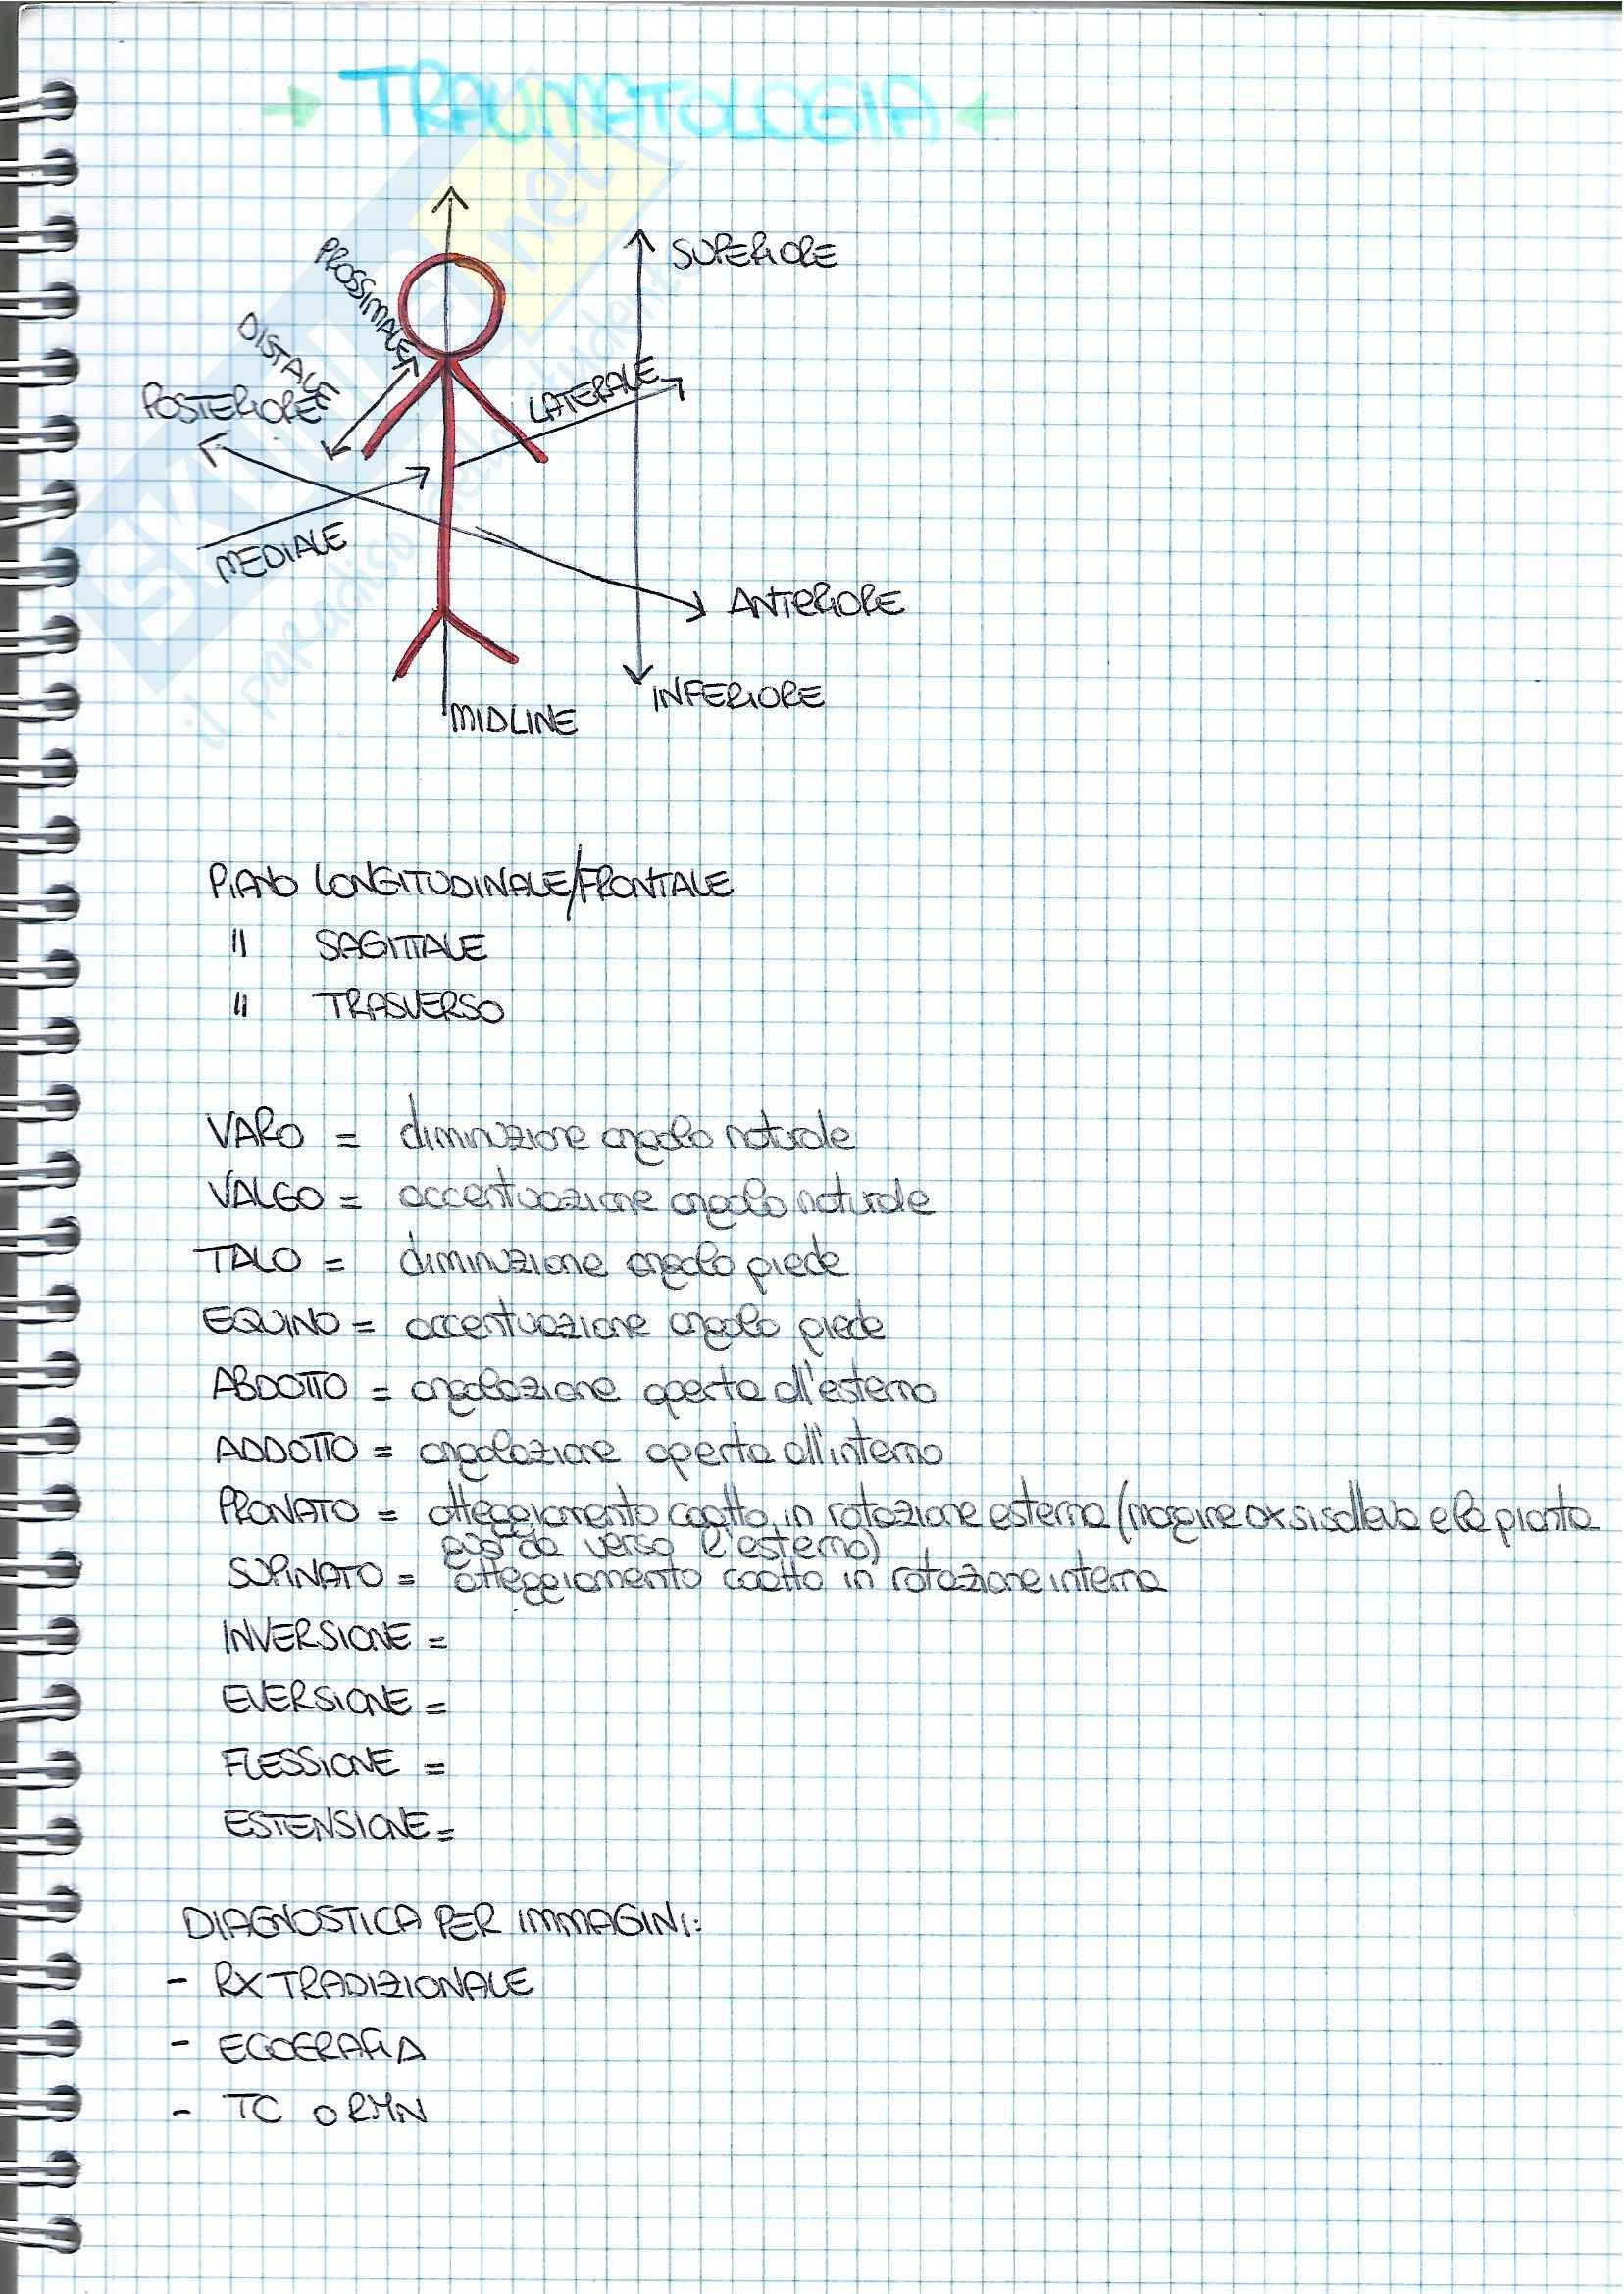 TRAUMATOLOGIA
SKUOLA.net
il paradiso dello studente
PROSSIMALE
DISTALE
POSTERIORE
SUPERIORE
LATERALE
MEDIALE
ANTERIORE
INFERIORE
MIDLINE
PIANO LONGITUDINALE/FRONTALE
" SAGITTALE
" TRASVERSO
VARO = diminuzione angolo naturale
VALGO = accentuazione angolo naturale
TALO = diminuzione angolo piede
EQUINO = accentuazione angolo piede
ABDOTTO = angolazione aperta all'esterno
ADDOTTO = angolazione aperta all'interno
PRONATO = atteggiamento coatto in rotazione esterna (margine dx si solleva e la pianta
guarda verso l'esterno)
SUPINATO = atteggiamento coatto in rotazione interna
INVERSIONE =
EVERSIONE =
FLESSIONE =
ESTENSIONE =
DIAGNOSTICA PER IMMAGINI:
- RX TRADIZIONALE
- ECOGRAFIA
- TC O RMN